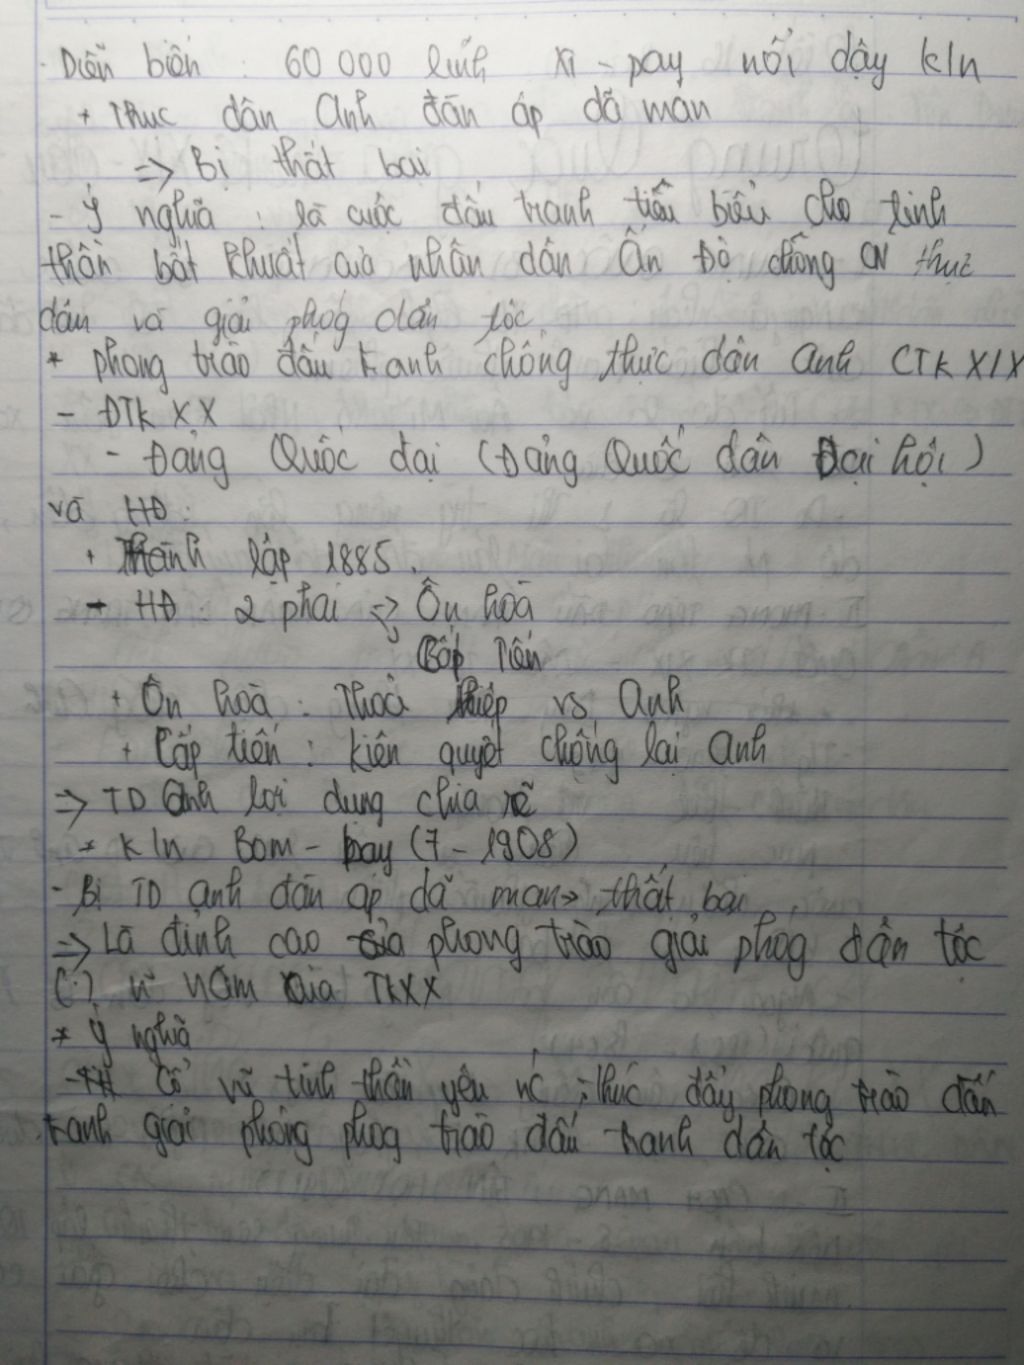 - Diễn biến : 60 000 lính Xi - pay nổi dậy k/n
+ Thực dân Anh đàn áp dã man
=> Bị thất bại
- Ý nghĩa : là cuộc đấu tranh tiêu biểu cho tinh
thần bất khuất của nhân dân Ấn Độ chống CN thực
dân và giải phóg dân tộc
* phong trào đấu tranh chống thực dân Anh CTK XIX
- ĐTK XX
- Đảng Quốc đại (Đảng Quốc dân Đại hội)
và HĐ:
+ Thành lập 1885.
- HĐ : 2 phái => Ôn hoà
Cấp Tiến
+ Ôn hoà : Thoả hiệp vs Anh
+ Cấp tiến : kiên quyết chống lại Anh
=> TD Anh lợi dụng chia rẽ
* K/n Bom - bay (7 - 1908)
- Bị TD anh đàn áp dã man -> thất bại
=> Là đỉnh cao của phong trào giải phóg dân tộc
(.) năm của TKXX
* Ý nghĩa
- Cổ vũ tinh thần yêu nc ; thúc đẩy phong trào đấu
tranh giải phóng phog trào đấu tranh dân tộc